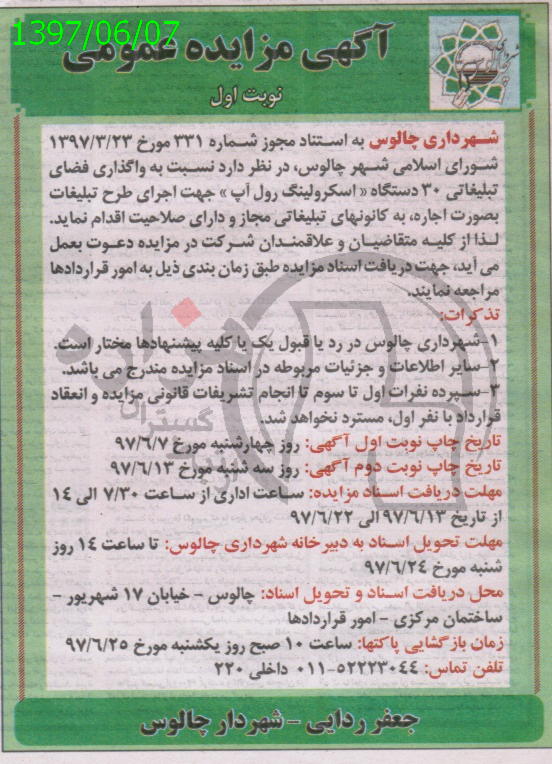 1397/06/07
آگهی مزایده عمومی
نوبت اول
شهرداری چالوس به استناد مجوز شماره ۳۳۱ مورخ ۱۳۹۷/۳/۲۳
شورای اسلامی شهر چالوس، در نظر دارد نسبت به واگذاری فضای
تبلیغاتی ۳۰ دستگاه « اسکرولینگ رول آپ » جهت اجرای طرح تبلیغات
بصورت اجاره، به کانونهای تبلیغاتی مجاز و دارای صلاحیت اقدام نماید.
لذا از کلیه متقاضیان و علاقمندان شرکت در مزایده دعوت بعمل
می آید، جهت دریافت اسناد مزایده طبق زمان بندی ذیل به امور قراردادها
مراجعه نمایند.
تذکرات:
۱-شهرداری چالوس در رد یا قبول یک یا کلیه پیشنهادها مختار است.
۲-سایر اطلاعات و جزئیات مربوطه در اسناد مزایده مندرج می باشد.
۳-سپرده نفرات اول تا سوم تا انجام تشریفات قانونی مزایده و انعقاد
قرارداد با نفر اول، مسترد نخواهد شد.
تاریخ چاپ نوبت اول آگهی: روز چهارشنبه مورخ ۹۷/۶/۷
تاریخ چاپ نوبت دوم آگهی: روز سه شنبه مورخ ۹۷/۶/۱۳
مهلت دریافت اسناد مزایده: ساعت اداری از ساعت ۷/۳۰ الی ۱۴
از تاریخ ۹۷/۶/۱۳ الی ۹۷/۶/۲۲
مهلت تحویل اسناد به دبیرخانه شهرداری چالوس: تا ساعت ۱۴ روز
شنبه مورخ ۹۷/۶/۲۴
محل دریافت اسناد و تحویل اسناد: چالوس - خیابان ۱۷ شهریور -
ساختمان مرکزی - امور قراردادها
زمان بازگشایی پاکتها: ساعت ۱۰ صبح روز یکشنبه مورخ ۹۷/۶/۲۵
تلفن تماس: ۵۲۲۲۳۰۴۴-۰۱۱ داخلی ۲۲۰
جعفر ردایی - شهردار چالوس